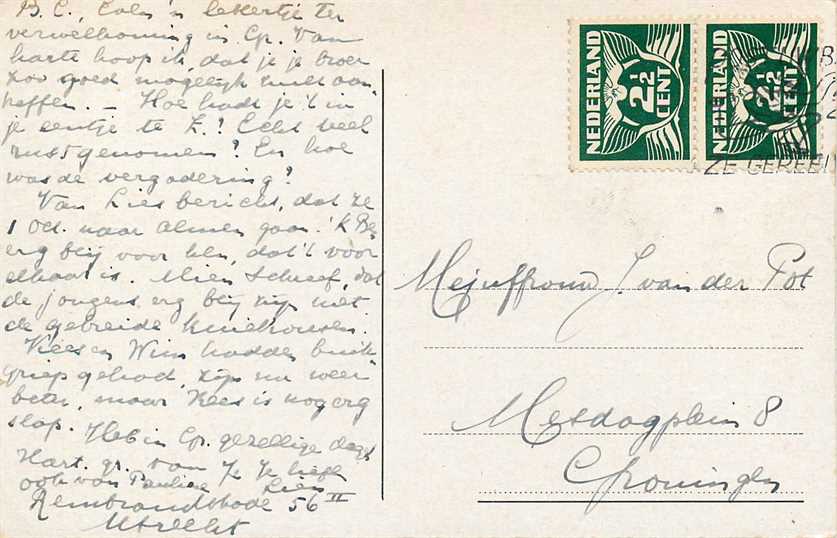 B. C., Even 'n lekkertje ter
verwelkoming in Gr. Van
harte hoop ik, dat je je broer
zoo goed mogelijk zult aan-
treffen. – Hoe hadt je 't in
je eentje te Z.? Echt veel
rust genomen? En hoe
was de vergadering?
Van Lies bericht, dat ze
1 Oct. naar Almen gaan. 'k Ben
erg blij voor hen, dat 't voor
elkaar is. Mien schreef, dat
de jongens erg blij zijn met
de gebreide kniekousen.
Kees en Wim hadden buik-
griep gehad, zijn nu weer
beter, maar Kees is nog erg
slap. Heb in Gr. gezellige dagen
Hart. gr. van je je liefh.
ook van Pauline Lien
Rembrandtkade 56 II
Utrecht
NEDERLAND
2½
CENT
NEDERLAND
2½
CENT
ZE GEREEL
Mejuffrouw J. van der Pot
Mesdagplein 8
Groningen